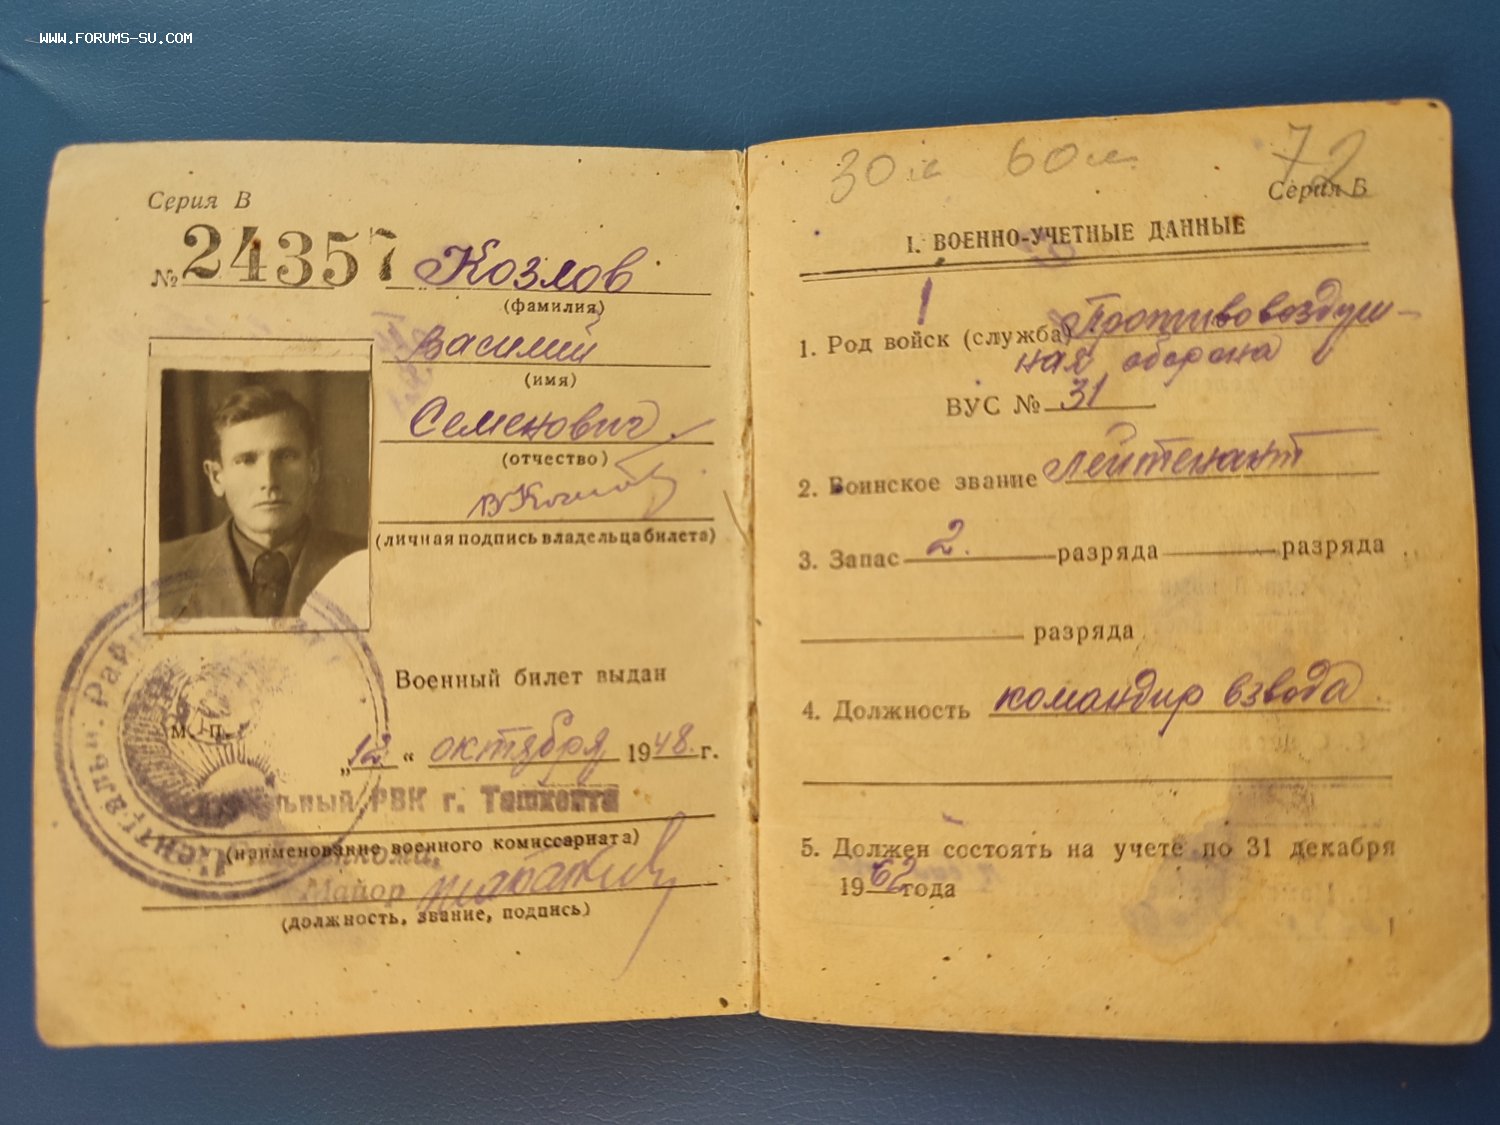 WWW.FORUMS-SU.COM
Серия В
№ 24357 Козлов
(фамилия)
Василий
(имя)
Семенович
(отчество)
(личная подпись владельца билета)
Военный билет выдан
М. П.
„12“ октября 1948. г.
РВК г. Ташкента
(наименование военного комиссариата)
Майор
(должность, звание, подпись)
30 60 72
Серия Б
I. ВОЕННО-УЧЕТНЫЕ ДАННЫЕ
1
1. Род войск (служба) Противовоздуш-
ная оборона
ВУС № 31
2. Воинское звание лейтенант
3. Запас 2. разряда разряда
разряда
4. Должность командир взвода
5. Должен состоять на учете по 31 декабря
1962 года
1